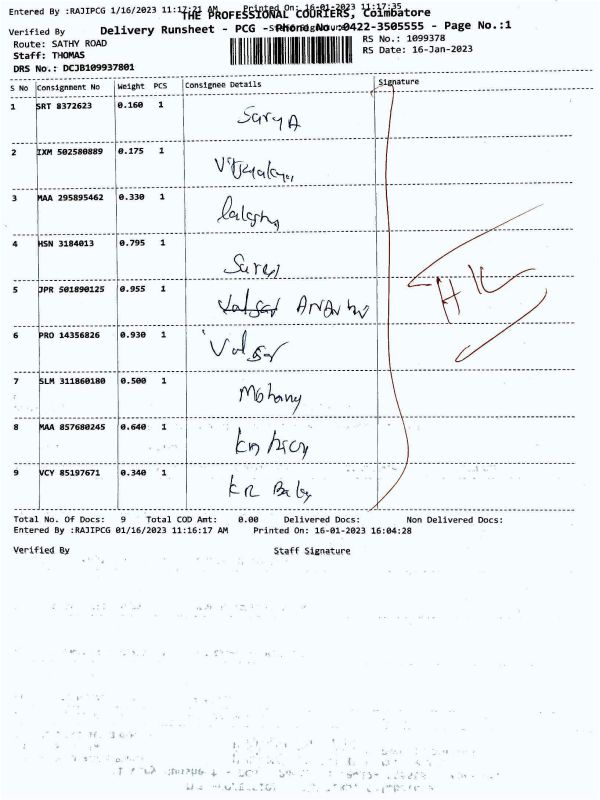 Entered By :RAJIPCG 1/16/2023 11:17:21 AM Printed On: 16-01-2023 11:17:35
THE PROFESSIONAL COURIERS, Coimbatore
Verified By
Delivery Runsheet - PCG - Phone No.:0422-3505555 - Page No.:1
Route: SATHY ROAD
RS No.: 1099378
Staff: THOMAS
RS Date: 16-Jan-2023
DRS No.: DCJB109937801
S No Consignment No Weight PCS Consignee Details Signature
1 SRT 8372623 0.160 1 Sarya
2 IXM 502580889 0.175 1
3 MAA 295895462 0.330 1
4 HSN 3184013 0.795 1
5 JPR 501890125 0.955 1
6 PRO 14356826 0.930 1
7 SLM 311860180 0.500 1 Mohany
8 MAA 857680245 0.640 1
9 VCY 85197671 0.340 1
Total No. Of Docs: 9 Total COD Amt: 0.00 Delivered Docs: Non Delivered Docs:
Entered By :RAJIPCG 01/16/2023 11:16:17 AM Printed On: 16-01-2023 16:04:28
Verified By Staff Signature